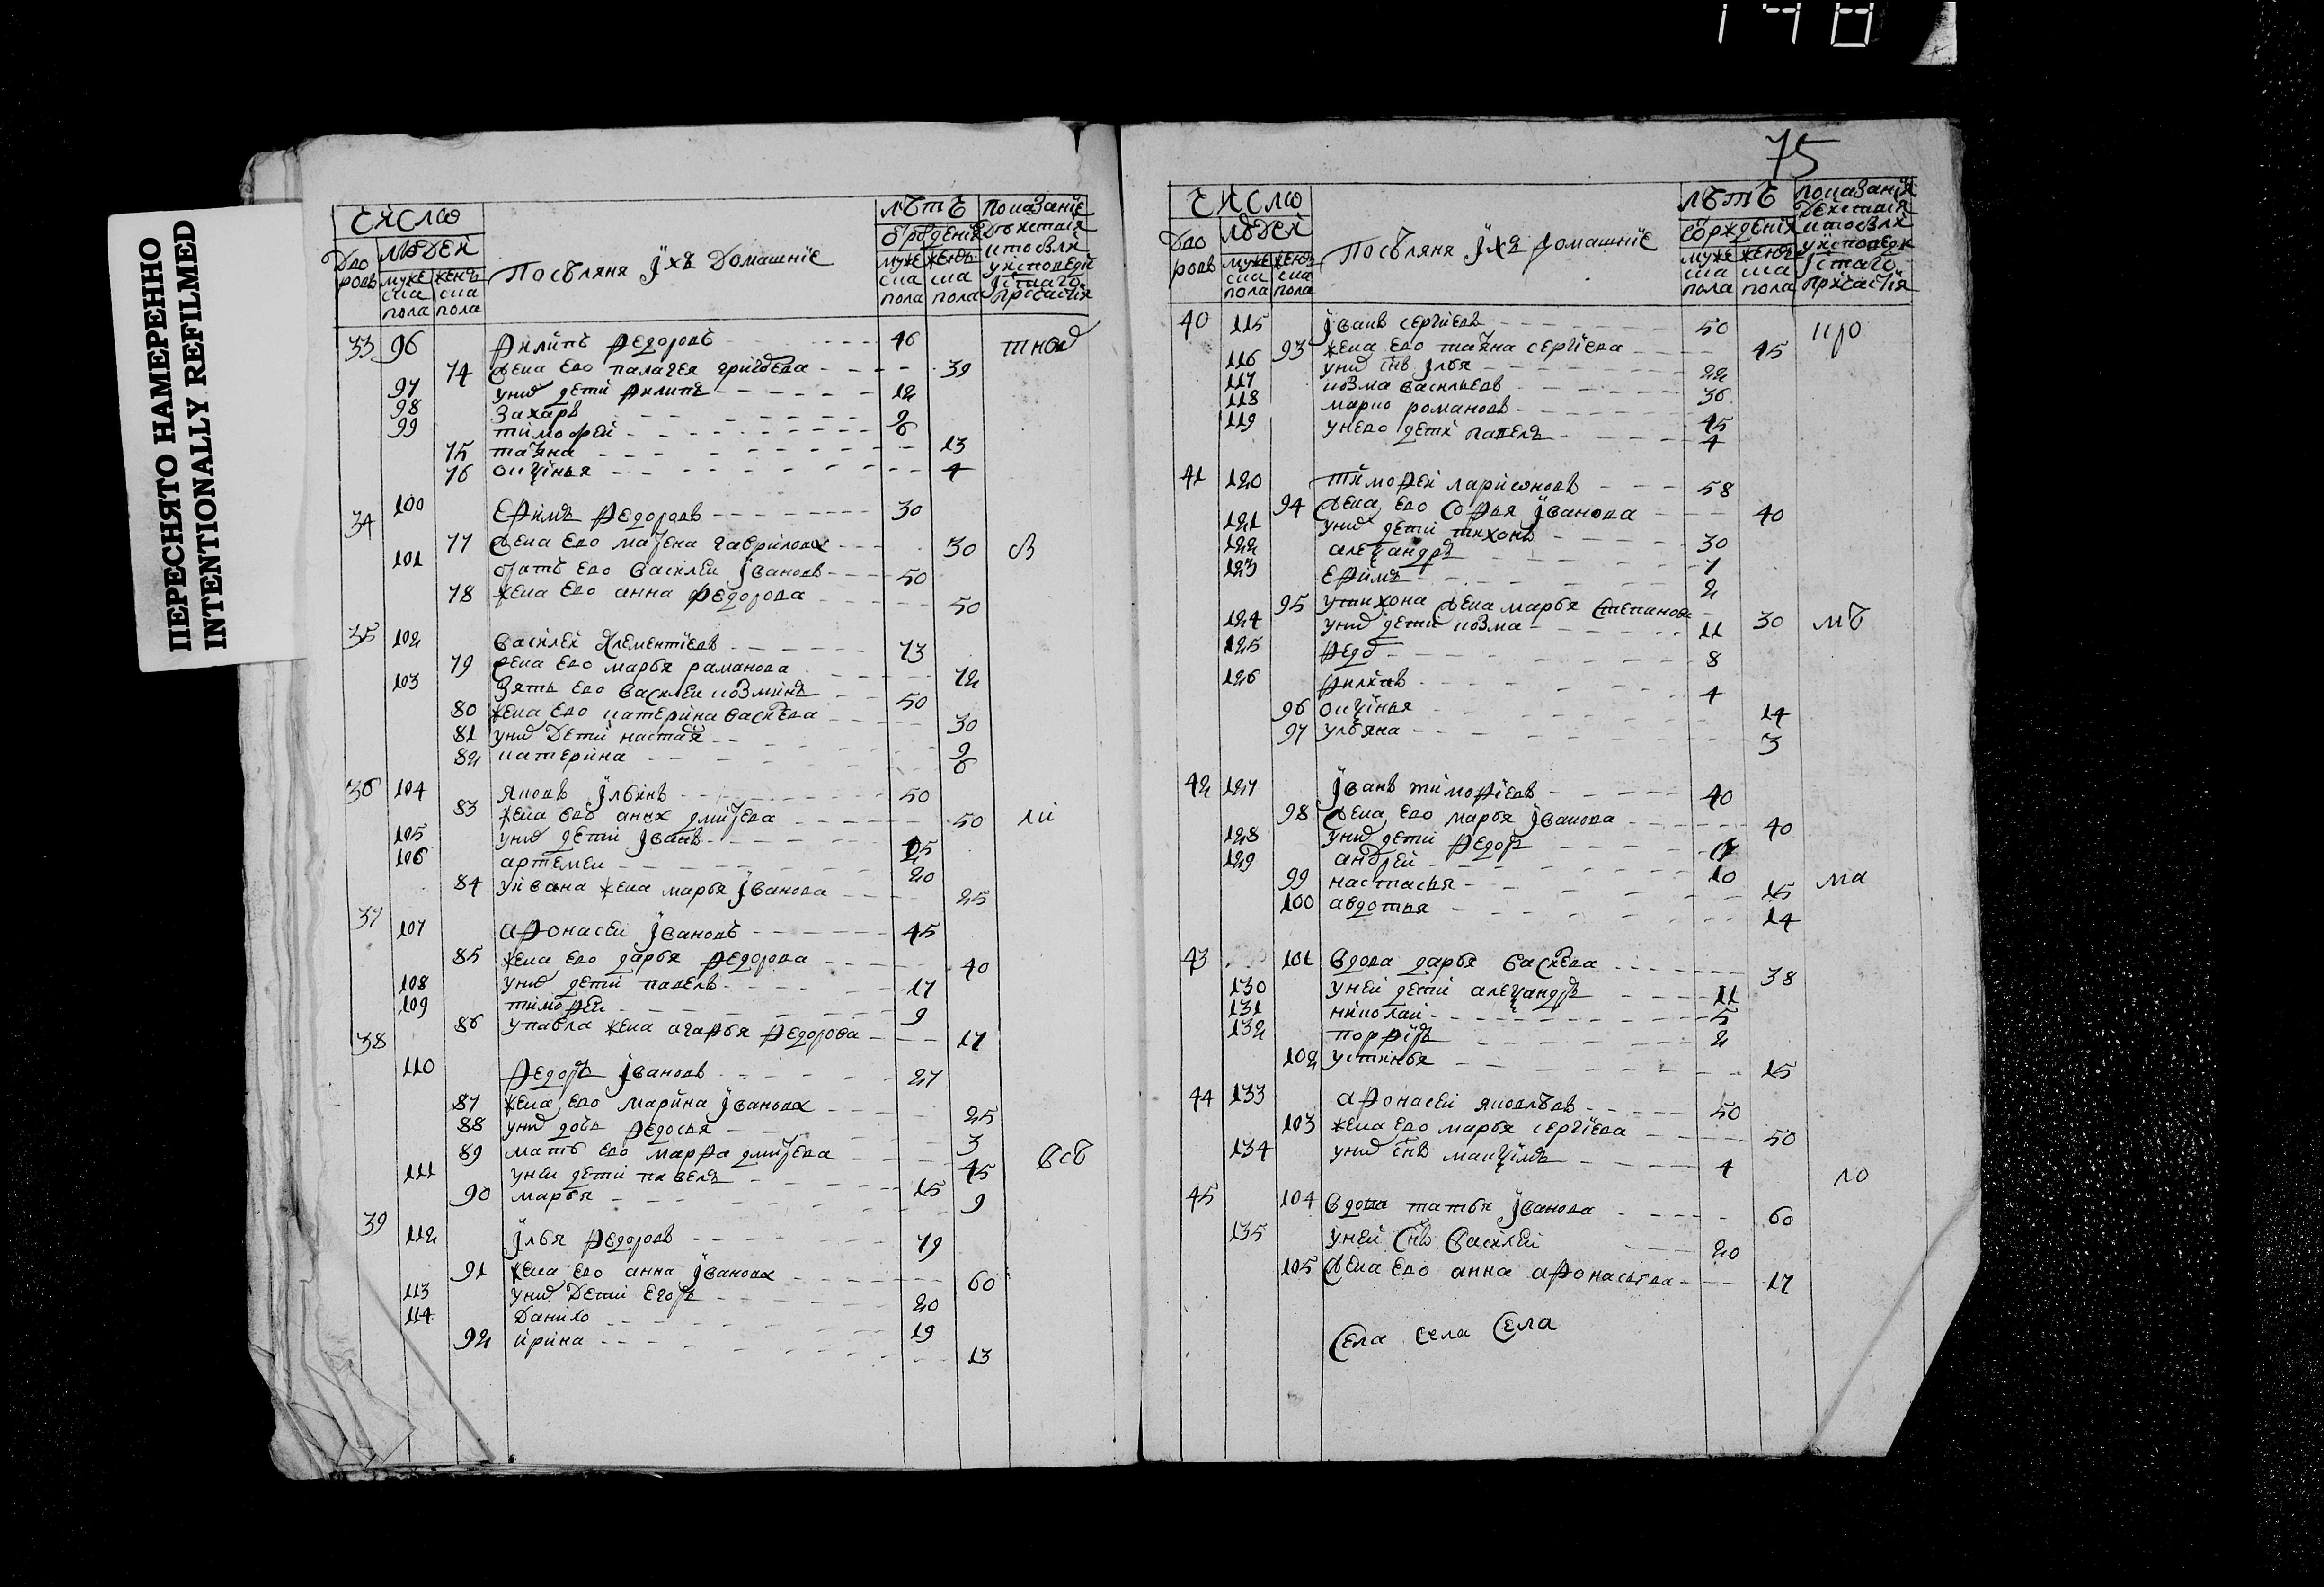 ПЕРЕСНЯТО НАМЕРЕННО
INTENTIONALLY REFILMED
число
дво ровъ
людей
муже ска пола
женъ ска пола
Посѣляня ихъ домашние
лѣтъ
от рождения
муже ска пола
женъ ска пола
33 96 Филипъ Федоровъ 46
74 жена ево палагея григорева 39
97 у них дети филипъ 12
98 захаръ 9
99 тимофеи 6
75 татяна 13
76 оксинья 4
34 100 Ефимъ Федоровъ 30
77 жена ево матрена гаврилова 30
101 зять ево василеи Ивановъ 50
78 жена ево анна федорова 50
35 102 василеи клементиевъ 73
79 жена ево марья раманова 72
103 зять ево василеи козминъ 50
80 жена ево катерина васильева 30
81 у них дети настасия 9
82 катерина 6
36 104 яковъ Ильинъ 50
83 жена ево анна дмитрева 50
105 у них дети Иванъ 25
106 артемеи 20
84 у ивана жена марья Иванова 25
37 107 афонасеи Ивановъ 45
85 жена ево дарья федорова 40
108 у них дети павелъ 17
109 тимофеи 9
86 у павла жена агафья федорова 17
38 110 Федоръ Ивановъ 27
87 жена ево марина Иванова 25
88 у них дочь федосья 3
89 мать ево марфа дмитрева 45
111 у неи дети павелъ 15
90 марья 9
39 112 Илья федоровъ 79
91 жена ево анна Иванова 60
113 у них дети егоръ 20
114 данило 19
92 ирина 13
75
число
дво ровъ
людей
муже ска пола
женъ ска пола
Посѣляня ихъ домашние
лѣтъ
от рождения
муже ска пола
женъ ска пола
40 115 Иванъ сергиевъ 50
93 жена ево татяна сергиева 45
116 у них снъ Илья 22
117 козма васильевъ 36
118 марко романовъ 45
119 у нево дети павелъ 4
41 120 тимофеи ларионовъ 58
94 жена ево софья Иванова 40
121 у них дети тихонъ 30
122 александръ 7
123 Ефимъ 2
95 у тихона жена марья степанова 30
124 у них дети козма 11
125 федо 8
126 филипъ 4
96 оксинья 14
97 ульяна 3
42 127 Иванъ тимофиевъ 40
98 жена ево марья Иванова 40
128 у них дети федоръ
129 андреи 10
99 настасья 15
100 авдотья 14
43 101 вдова дарья васильева 38
130 у неи дети александръ 11
131 николаи 5
132 порфиръ 2
102 устинья 15
44 133 афонасеи яковлевъ 50
103 жена ево марья сергиева 50
134 у них снъ максимъ 4
45 104 вдова татья Иванова 60
135 у неи снъ василеи 20
105 жена ево анна афонасьева 17
села села села